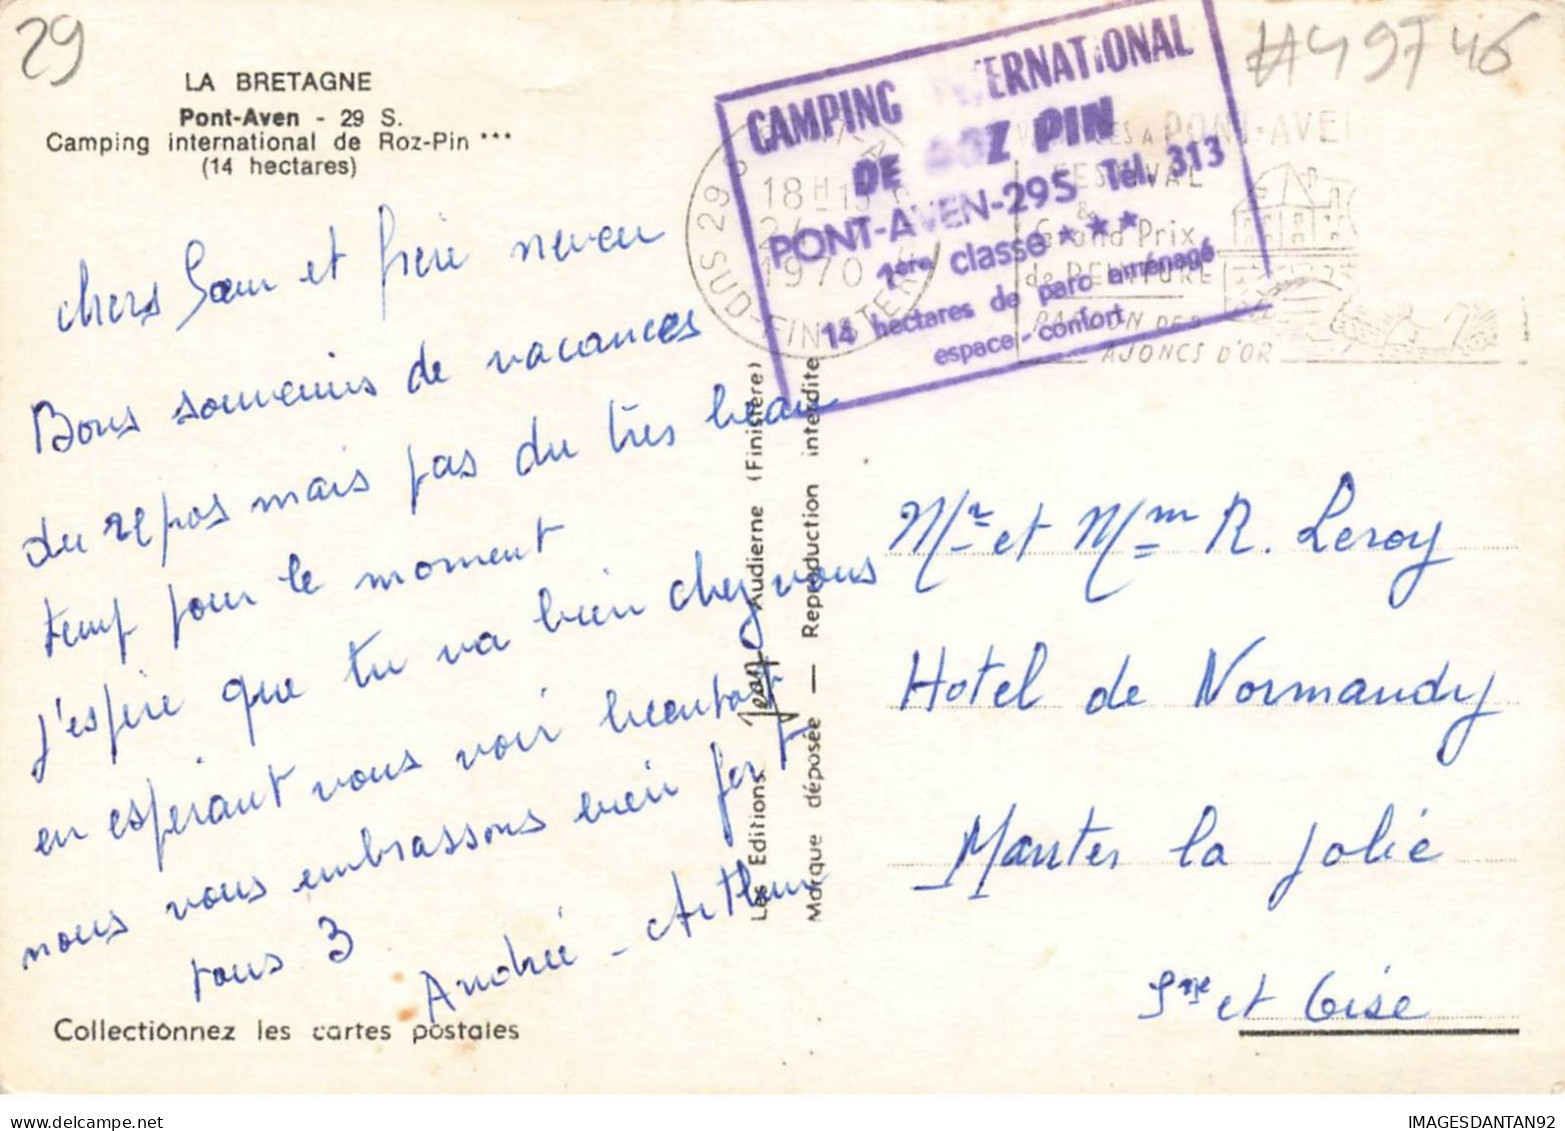 29
#49746
LA BRETAGNE
Pont-Aven - 29 S.
Camping international de Roz-Pin ***
(14 hectares)
chers Sœur et frère neveu
Bons souvenirs de vacances
du repos mais pas du très beau
temp pour le moment
j'espère que tu va bien chez vous
en espérant vous voir bientôt
nous vous embrassons bien fort
tous 3
Andrée - Arthur
Collectionnez les cartes postales
CAMPING INTERNATIONAL
DE ROZ PIN
PONT-AVEN-29S Tél. 313
1ère classe ***
14 hectares de parc aménagé
espace-confort
18H15
1970
29 SUD-FINISTERE
VACANCES A PONT-AVEN
FESTIVAL
&
Grand Prix
de PEINTURE
PARDON DES
AJONCS D'OR
Les Editions Jean Audierne (Finistère)
Marque déposée — Reproduction interdite
Mr et Mme R. Leroy
Hotel de Normandy
Mantes la jolie
Sne et Oise
IMAGESDANTAN92